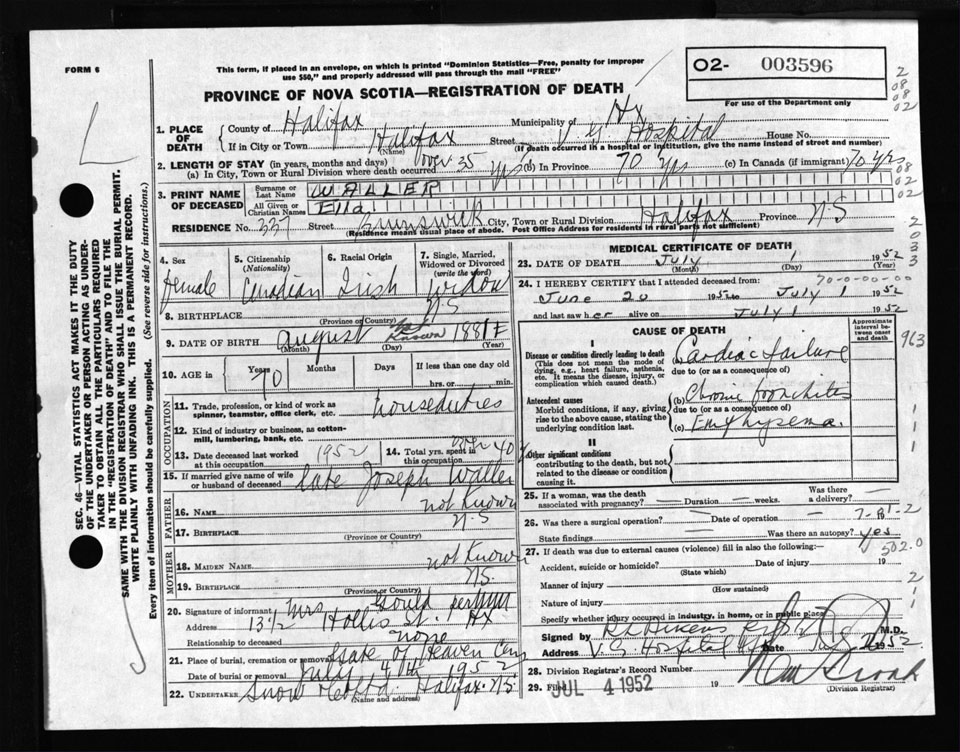 FORM 6
This form, if placed in an envelope, on which is printed "Dominion Statistics—Free, penalty for improper
use $50," and properly addressed will pass through the mail "FREE"
O2- 003596
For use of the Department only
PROVINCE OF NOVA SCOTIA—REGISTRATION OF DEATH
1. PLACE OF DEATH County of Halifax Municipality of Hx
If in City or Town Halifax Street V. G. Hospital House No.
(Name) (If death occurred in a hospital or institution, give the name instead of street and number)
2. LENGTH OF STAY (in years, months and days)
(a) In City, Town or Rural Division where death occurred over 35 yrs (b) In Province 70 yrs (c) In Canada (if immigrant) 70 yrs
3. PRINT NAME OF DECEASED Surname or Last Name WALLER
All Given or Christian Names Ella
RESIDENCE No. 337 Street Brunswick City, Town or Rural Division Halifax Province NS
(Residence means usual place of abode. Post Office Address for residents in rural parts not sufficient)
4. Sex Female
5. Citizenship (Nationality) Canadian
6. Racial Origin Irish
7. Single, Married, Widowed or Divorced (write the word) Widow
8. BIRTHPLACE NS
(Province or Country)
9. DATE OF BIRTH August Known 1881 E
(Month) (Day) (Year)
10. AGE in Years 70 Months Days If less than one day old
hrs. or min.
OCCUPATION
11. Trade, profession, or kind of work as spinner, teamster, office clerk, etc. houseduties
12. Kind of industry or business, as cotton-mill, lumbering, bank, etc.
13. Date deceased last worked at this occupation 1952
14. Total yrs. spent in this occupation over 40 y
15. If married give name of wife or husband of deceased late Joseph Waller
FATHER
16. NAME not known
17. BIRTHPLACE N.S
(Province or Country)
MOTHER
18. MAIDEN NAME not known
19. BIRTHPLACE NS.
(Province or Country)
20. Signature of informant Mrs Gould
Address 13½ Hollis St. Hx
Relationship to deceased none
21. Place of burial, cremation or removal Gate of Heaven Cem
Date of burial or removal July 4th 1952
22. UNDERTAKER Snow & Co Ltd. Halifax. NS.
(Name and address)
MEDICAL CERTIFICATE OF DEATH
23. DATE OF DEATH July 1 1952
(Month) (Day) (Year)
24. I HEREBY CERTIFY that I attended deceased from: 70-0-00-00
June 20 1952 to July 1 1952
and last saw her alive on July 1 1952
CAUSE OF DEATH
Approximate interval between onset and death
I
Disease or condition directly leading to death
(This does not mean the mode of dying, e.g., heart failure, asthenia, etc. It means the disease, injury, or complication which caused death.)
(a) Cardiac failure
due to (or as a consequence of)
Antecedent causes
Morbid conditions, if any, giving rise to the above cause, stating the underlying condition last.
(b) Chronic bronchitis
due to (or as a consequence of)
(c) Emphysema.
II
Other significant conditions
contributing to the death, but not related to the disease or condition causing it.
25. If a woman, was the death associated with pregnancy? — Duration — weeks. Was there a delivery? —
26. Was there a surgical operation? — Date of operation —
State findings Was there an autopsy? yes
27. If death was due to external causes (violence) fill in also the following:-
Accident, suicide or homicide? Date of injury 19
(State which)
Manner of injury
(How sustained)
Nature of injury
Specify whether injury occurred in industry, in home, or in public place
Signed by M.D.
Address V. G. Hospital Date July 2 1952
28. Division Registrar's Record Number
29. Filed JUL 4 1952 19
(Division Registrar)
SEC. 46—VITAL STATISTICS ACT MAKES IT THE DUTY
OF THE UNDERTAKER OR PERSON ACTING AS UNDER-
TAKER TO OBTAIN ALL THE PARTICULARS REQUIRED
IN THE "REGISTRATION OF DEATH" AND TO FILE THE
SAME WITH THE DIVISION REGISTRAR WHO SHALL ISSUE THE BURIAL PERMIT.
WRITE PLAINLY WITH UNFADING INK. THIS IS A PERMANENT RECORD.
Every item of information should be carefully supplied. (See reverse side for instructions.)
2
08
08
02
08
02
02
2
0
3
3
963
1
1
1
7-81-2
502.0
2
1
1